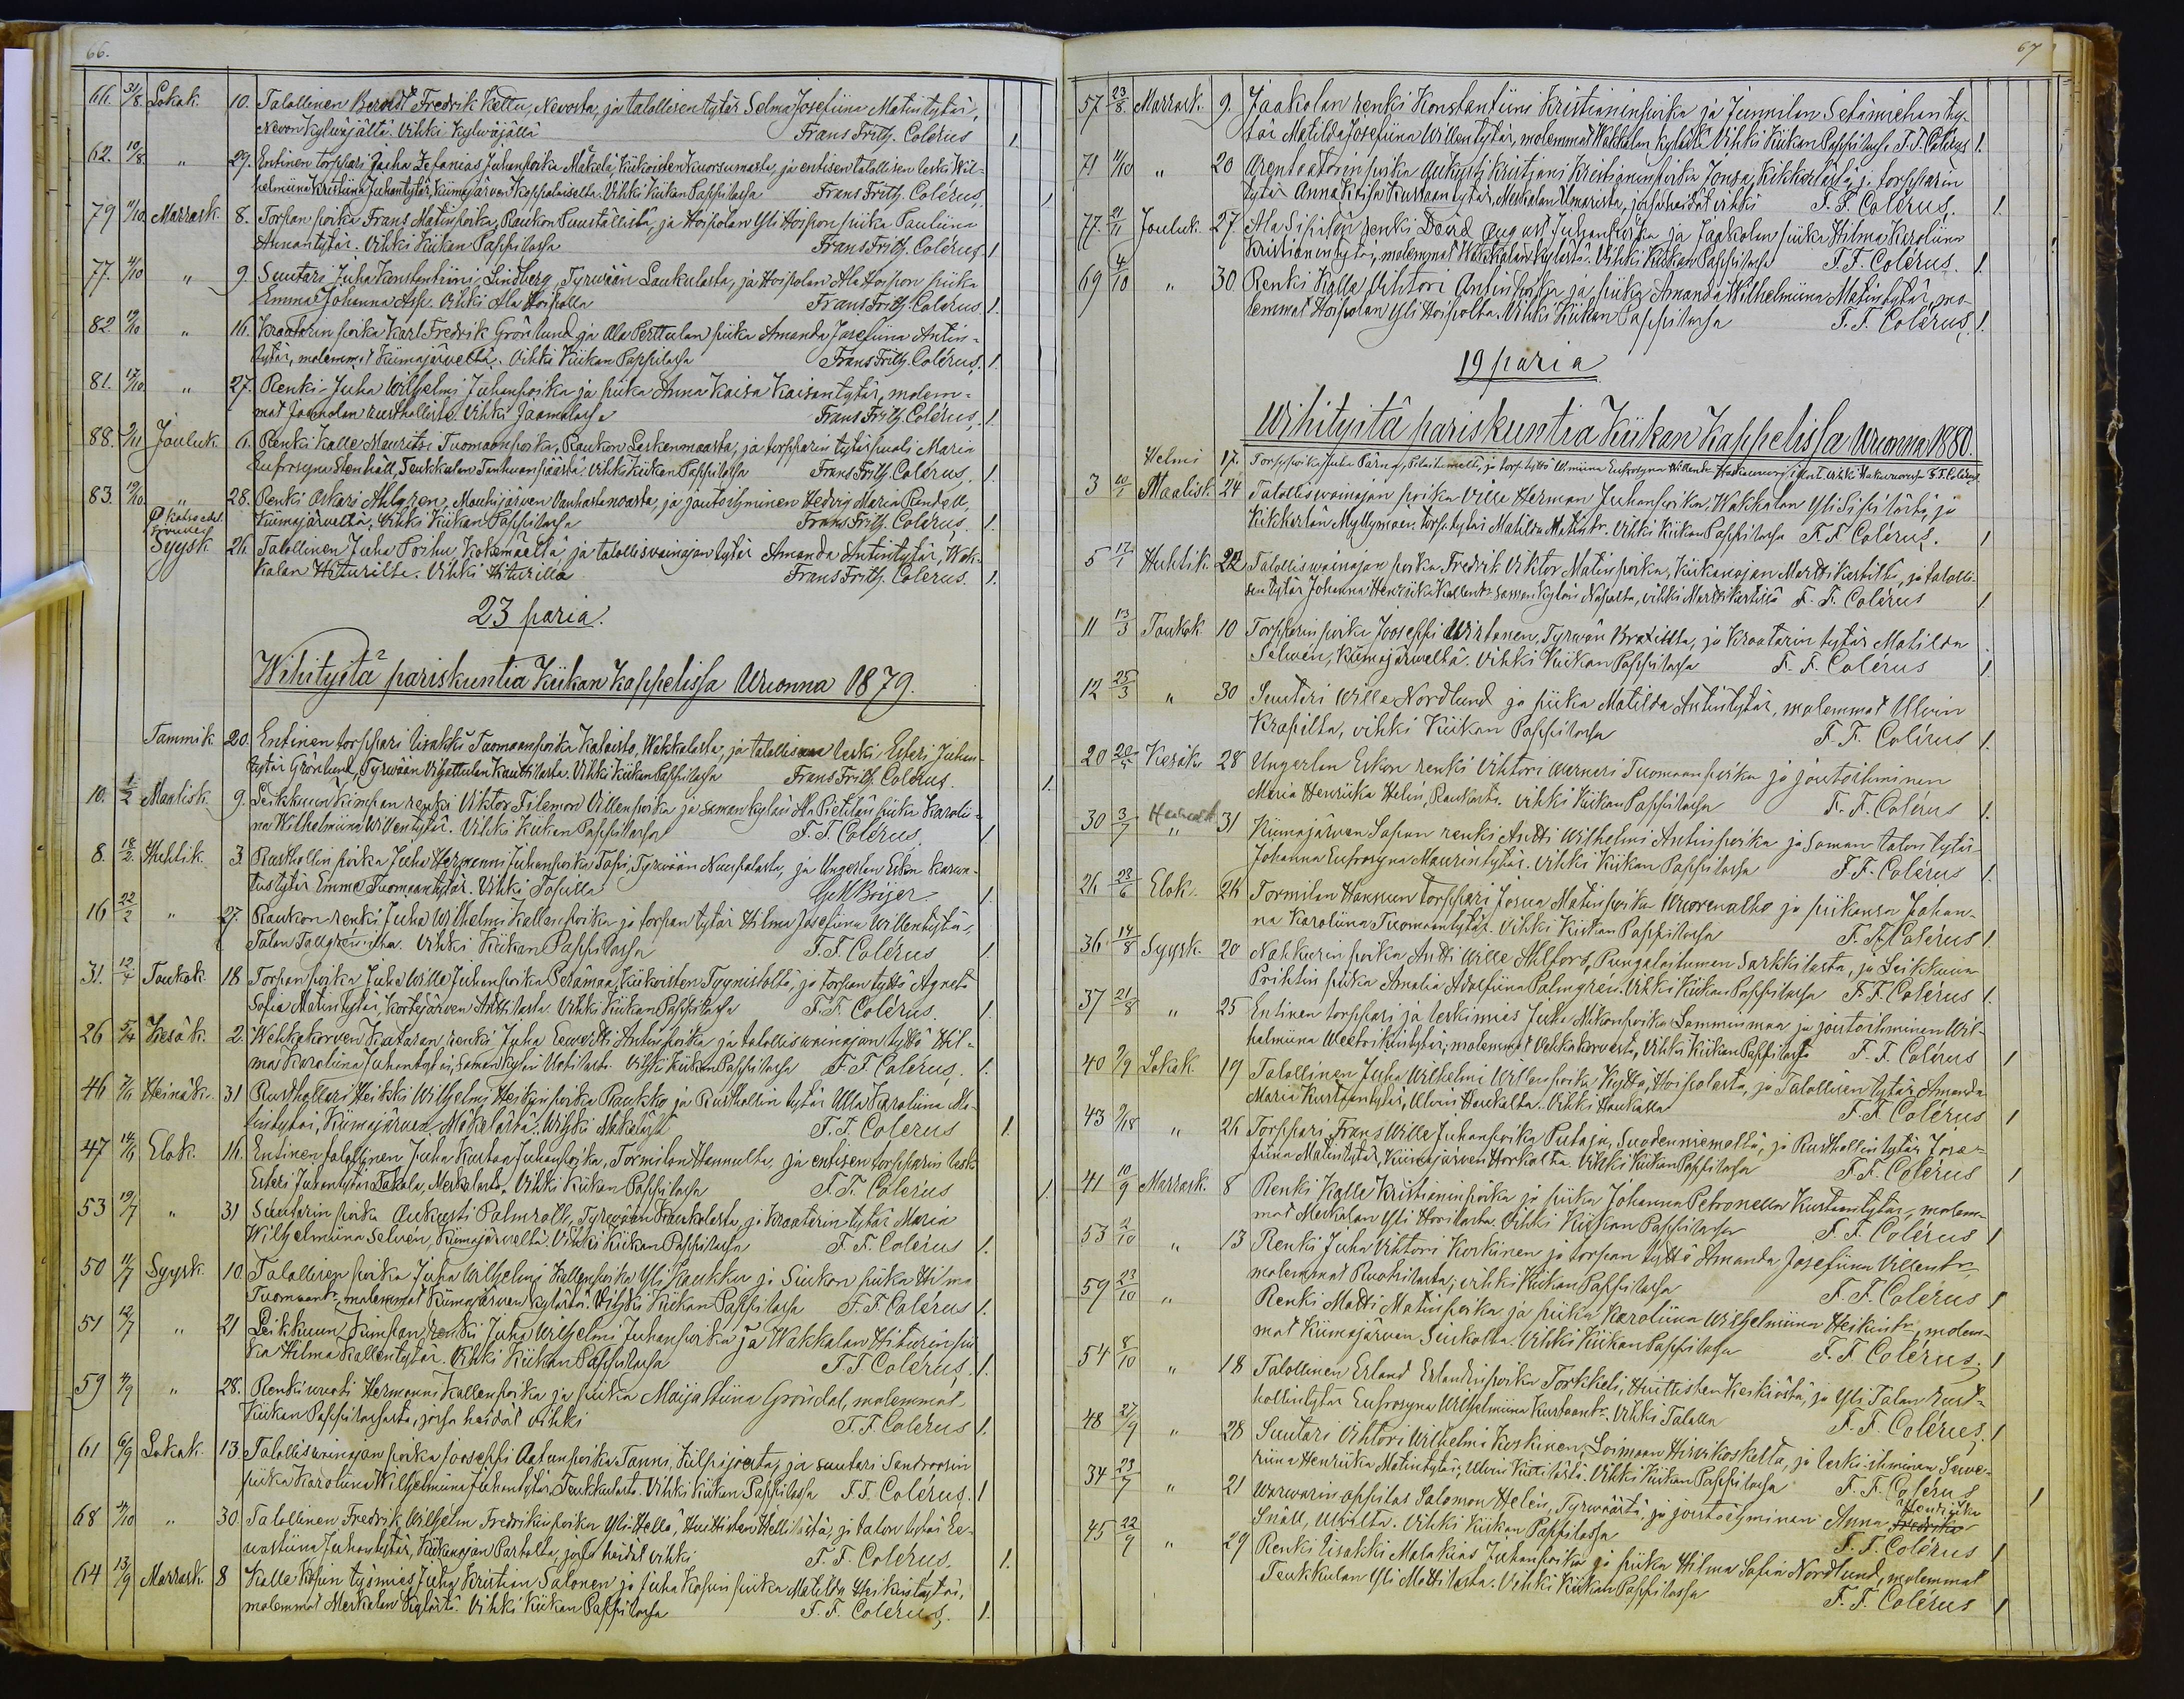 66.
66. 31/8. Lokak. 10. Talollinen Berndt Fredrik Kettu, Nevosta, ja talollisen tytär Selma Josefiina Matintytär,
Nevon Kylväjältä. Vihki Kylväjällä Frans Frith. Colérus 1.
62. 10/8. " 29. Entinen torppari Jaska Sefanias Juhanpoika Mäkelä, Kiikoisten Kuorsumaata, ja entisen talollisen leski Wil-
helmiina Kristiina Juhantytär, Kiimajärven Kappalaiselta. Vihki Kiikan Pappilassa Frans Frith. Colérus, 1
79 11/10. Marrask. 8. Torpan poika Frans Matinpoika, Raukon Paustallista, ja Hoipolan Yli Hoipon piika Pauliina
Annantytär. Vihki Kiikan Pappilassa Frans Frith. Colérus, 1
77. 4/10 " 9. Suutari Juha Konstantiini Lindberg, Tyrwään Laukulasta, ja Hoipolan Ala Hoipon piika
Emma Johanna Asp. Vihki Ala Hoipolla Frans Frith. Colérus. 1.
82 19/10 " 16. Kraatarin poika Karl Fredrik Grönlund ja Ala Perttulan piika Amanda Josefiina Antin-
tytär, molemmat Kiimajärveltä. Vihki Kiikan Pappilassa Frans Frith. Colérus. 1.
81. 17/10. " 27. Renki Juha Wilhelmi Juhanpoika ja piika Anna Kaisa Kaisantytär, molem-
mat Jaamalan rusthollista. Vihki Jaamalassa Frans Frith. Colérus, 1.
88. 9/11 Jouluk. 6. Renki Kalle Mauritsi Tuomaanpoika, Raukon Leskenmaasta, ja torpparin tytärpuoli Maria
Eufrosyna Stenhäll, Teukkulan Tanhuanpäästä. Vihki Kiikan Pappilassa Frans Frith. Colérus, 1.
83. 19/10. " 28. Renki Oskari Ahlgren, Mouhijärven Vanhastanoasta, ja joutoihminen Hedvig Maria Randell,
Kiimajärveltä. Vihki Kiikan Pappilassa Frans Frith. Colérus. 1.
Syysk 26. Talollinen Juha Poihu, Kokemäeltä ja talollisvainajan tytär Amanda Antintytär, Wak-
kalan Hiturilta. Vihki Hiturilla Frans Frith. Colérus. 1.
23 paria.
Wihityitä pariskuntia Kiikan Kappelissa Wuonna 1879.
Tammik 20. Entinen torppari Iisakki Tuomaanpoika Kalaisto, Wakkalasta, ja talollisen leski Esteri Juhan-
tytär Grönlund, Tyrwään Vihattulan Kauttilasta. Vihki Kiikan Pappilassa Frans Frith. Colérus. 1.
10. 1/2 Maalisk. 9. Leikkuun Kimpan renki Viktor Filemon Villenpoika ja saman kylän Ala Pietilän piika Karoli-
na Wilhelmiina Willentytär. Vihki Kiikan Pappilassa F. F. Colérus. 1
8. 18/2. Huhtik. 3. Rusthollin poika Juha Hermanni Juhanpoika Tapi, Tyrwään Nuupalasta, ja Ungerlan Eskon kasva-
tustytär Emma Tuomaantytär. Vihki Tapilla G M Boijer 1
16 22/2 " 27. Raukon renki Juha Wilhelmi Kallenpoika ja torpan tytär Hilma Josefiina Willentytär,
Talan Tallgrenilta. Vihki Kiikan Pappilassa F. F. Colérus 1.
31. 12/4 Toukok. 18 Torpan poika Juha Wille Juhanpoika Perämaa, Kiikoisten Tyynistoltä, ja torpan tyttö Agneta
Sofia Matintytär, Kortejärven Anttilasta. Vihki Kiikan Pappilassa F. F. Colérus. 1.
26 5/4 Kesäk. 2. Wehkakorven Kataran renki Juha Eewertti Antinpoika ja talollisvainajan tyttö Hil-
ma Karoliina Juhantytär, saman kylän Uotilasta. Vihki Kiikan Pappilassa F. F. Colérus. 1.
46 7/6 Heinäk. 31 Rusthollari Heikki Wilhelmi Heikinpoika Raukko ja Rusthollin tytär Ulla Karoliina Ma-
tintytär, Kiimajärven Mäkelästä. Wihki Mäkelässä F. F. Colérus 1.
47 14/6 Elok. 16. Entinen talollinen Juha Kustaa Juhanpoika, Tormilan Hannulta, ja entisen torpparin leski
Esteri Juhantytär Takala, Merkalasta. Vihki Kiikan Pappilassa F. F. Colérus 1.
53 19/7 " 31 Suutarin poika Aukusti Palmroth, Tyrwään Kaukolasta, ja kraatarin tytär Maria
Wilhelmiina Selven, Kiimajärveltä. Vihki Kiikan Pappilassa F. F. Colérus 1.
50 11/7 Syysk. 10. Talollisen poika Juha Wilhelmi Kallenpoika Yli Kaukku ja Siukon piika Hilma
Tuomaantr, molemmat Kiimajärven kylästä. Vihki Kiikan Pappilassa F. F. Colérus 1.
51 12/7 " 21 Leikkuun Kimpan renki Juha Wilhelmi Juhanpoika ja Wakkalan Hiturin pii-
ka Hilma Kallentytär. Vihki Kiikan Pappilassa F. F. Colérus. 1.
59 4/9 " 28. Renkivouti Hermanni Kallenpoika ja piika Maija Stiina Gröndal, molemmat
Kiikan Pappilassasta, jossa heidät vihki F. F. Colérus 1.
61 6/9 Lokak. 13. Talollisvainajan poika Jooseppi Aatunpoika Tanni, Kilpijoesta, ja suutari Sandroosin
piika Karoliina Wilhelmiina Juhantytär, Teukkulasta. Vihki Kiikan Pappilassa F. F. Colérus. 1
68 4/10 " 30. Talollinen Fredrik Wilhelm Fredrikinpoika Yli-Hellä, Huittisten Hellilästä, ja talon tytär Ee-
vastiina Juhantytär, Kiikanojan Partolta, jossa heidät vihki F. F. Colérus. 1.
64 13/9 Marrask. 8 Kalle Kopin työmies Juha Kristian Salonen ja Juha Kopin piika Matilda Yrikintytär,
molemmat Merkalan kylästä. Vihki Kiikan Pappilassa F. F. Colérus. 1.
67
57 23/8. Marrask. 9. Jaakolan renki Konstantiini Kristianinpoika ja Junnilan Setämiehen ty-
tär Matilda Josefiina Willentytär, molemmat Wakkalan kylästä. Vihki Kiikan Pappilassa F. F. Colérus 1.
71 11/10 " 20 Arentaatorin poika Aukusti Kristjani Kristianinpoika Jonsa, Kikkerlästä j. torpparin
tytär Anna Kaisa Kustaantytär, Merkalan Umarista, jossa heidät vihki F. F. Colérus. 1.
77. 21/11 Jouluk. 27. Ala Sipilän renki David August Juhanpoika ja Jaakolan piika Hilma Karoliina
Kristianintytär, molemmat Wakkalan kylästä. Vihki Kiikan Pappilassa F. F. Colérus. 1.
69 4/10 " 30 Renki Kalle Vihtori Antinpoika ja piika Amanda Wilhelmiina Matintytär, mo-
lemmat Hoipolan Yli Hoipolta. Vihki Kiikan Pappilassa F. F. Colérus. 1.
19 paria
Wihityitä pariskuntia Kiikan Kappelissa Wuonna 1880.
Helmi 17.
3 10/1 Maalisk. 24 Talollisvainajan poika Ville Herman Juhanpoika, Wakkalan Yli Sipilästä, ja
Kikkerlän Myllymaan torp. tytär Matilda Matintr. Vihki Kiikan Pappilassa F. F. Colérus. 1
5 17/1 Huhtik. 22 Talollisvainajan poika Fredrik Viktor Matinpoika, Kiikanojan Marttikertilta, ja talolli-
sen tytär Johanna Henriika Kallentr. saman kylän Napalta, vihki Marttikertissä F. F. Colérus 1.
11 13/3 Toukok. 10 Torpparin poika Jooseppi Wirtanen, Tyrwään Braxilta, ja kraatarin tytär Matilda
Selven, Kiimajärveltä. Vihki Kiikan Pappilassa F. F. Colérus 1.
12 25/3 " 30 Suutari Wille Nordlund ja piika Matilda Antintytär, molemmat Ulvin
Krapilta, vihki Kiikan Pappilassa F. F. Colérus 1.
20 Kesäk 28 Ungerlan Eskon renki Vihtori Werneri Tuomaanpoika ja joutoihminen
Maria Henriika Helin, Raukosta. Vihki Kiikan Pappilassa F. F. Colérus 1.
30 3/7 " 31 Kiimajärven Sapun renki Antti Wilhelmi Antinpoika ja saman talon tytär
Johanna Eufrosyna Maurintytär. Vihki Kiikan Pappilassa F. F. Colérus 1.
26 23/6 Elok. 26 Tormilan Hannun torppari Josua Matinpoika Wuorenalho ja piikansa Johan-
na Karoliina Tuomaantytär. Vihki Kiikan Pappilassa F. F. Colérus 1.
36 14/8 Syysk. 20 Nahkurin poika Antti Wille Ahlfors, Pungalaitumen Sarkkilasta, ja Leikkuun
Prihtin piika Amalia Adolfiina Palmgrén. Vihki Kiikan Pappilassa F. F. Colérus 1.
37 21/8 " 25 Entinen torppari ja leskimies Juha Mikonpoika Lamminmaa ja joutoihminen Wil-
helmiina Weetrikintytär, molemmat Vehkakorvesta, Vihki Kiikan Pappilassa F. F. Colérus 1
40 9/9 Lokak. 19 Talollinen Juha Wilhelmi Willenpoika Kyttä, Hoipolasta, ja Talollisen tytär Amanda
Maria Kustaantytär, Ulvin Haukalta. Vihki Haukalla F. F. Colérus 1
43 9/18 " 26 Torppari Frans Wille Juhanpoika Putaja, Suodenniemeltä, ja Rusthollin tytär Jose-
fiina Matintytär, Kiimajärven Horkalta. Vihki Kiikan Pappilassa F. F. Colérus 1
41 10/9 Marrask. 8 Renki Kalle Kristianinpoika ja piika Johanna Petronella Kustaantytär, molem-
mat Merkalan Yli Hoolasta. Vihki Kiikan Pappilassa F. F. Colérus 1
53 2/10 " 13 Renki Juha Vihtori Korkiinen ja torpan tyttö Amanda Josefiina Villentr,
molemmat Ruohilasta; vihki Kiikan Pappilassa F. F. Colérus 1
59 23/10 " Renki Matti Matinpoika ja piika Karoliina Wilhelmiina Heikintr, molem-
mat Kiimajärven Siukolta. Vihki Kiikan Pappilassa F. F. Colérus; 1
54 8/10 " 18 Talollinen Erland Erlandinpoika Torkkeli, Huittisten Keskiöstä, ja Yli Talan rust-
hollintytär Eufrosyna Wilhelmiina Kustaantr. Vihki Talalla F. F. Colérus. 1
48 27/9 " 28 Suutari Vihtori Wilhelmi Koskinen, Loimaan Hirvikoskelta, ja leski-ihminen Seve-
riina Henriika Matintytär, Ulvin Kuttilasta. Vihki Kiikan Pappilassa F. F. Colérus 1
34 23/7 " 21 Warwarin oppilas Salomon Helén, Tyrwäästä, ja joutoihminen Anna Henriika
Snäll, Ulvilta. Vihki Kiikan Pappilassa F. F. Colérus 1
45 22/9 " 29 Renki Iisakki Malakias Juhanpoika ja piika Hilma Sofia Nordlund, molemmat
Teukkulan Yli Mattilasta. Vihki Kiikan Pappilassa F. F. Colérus 1